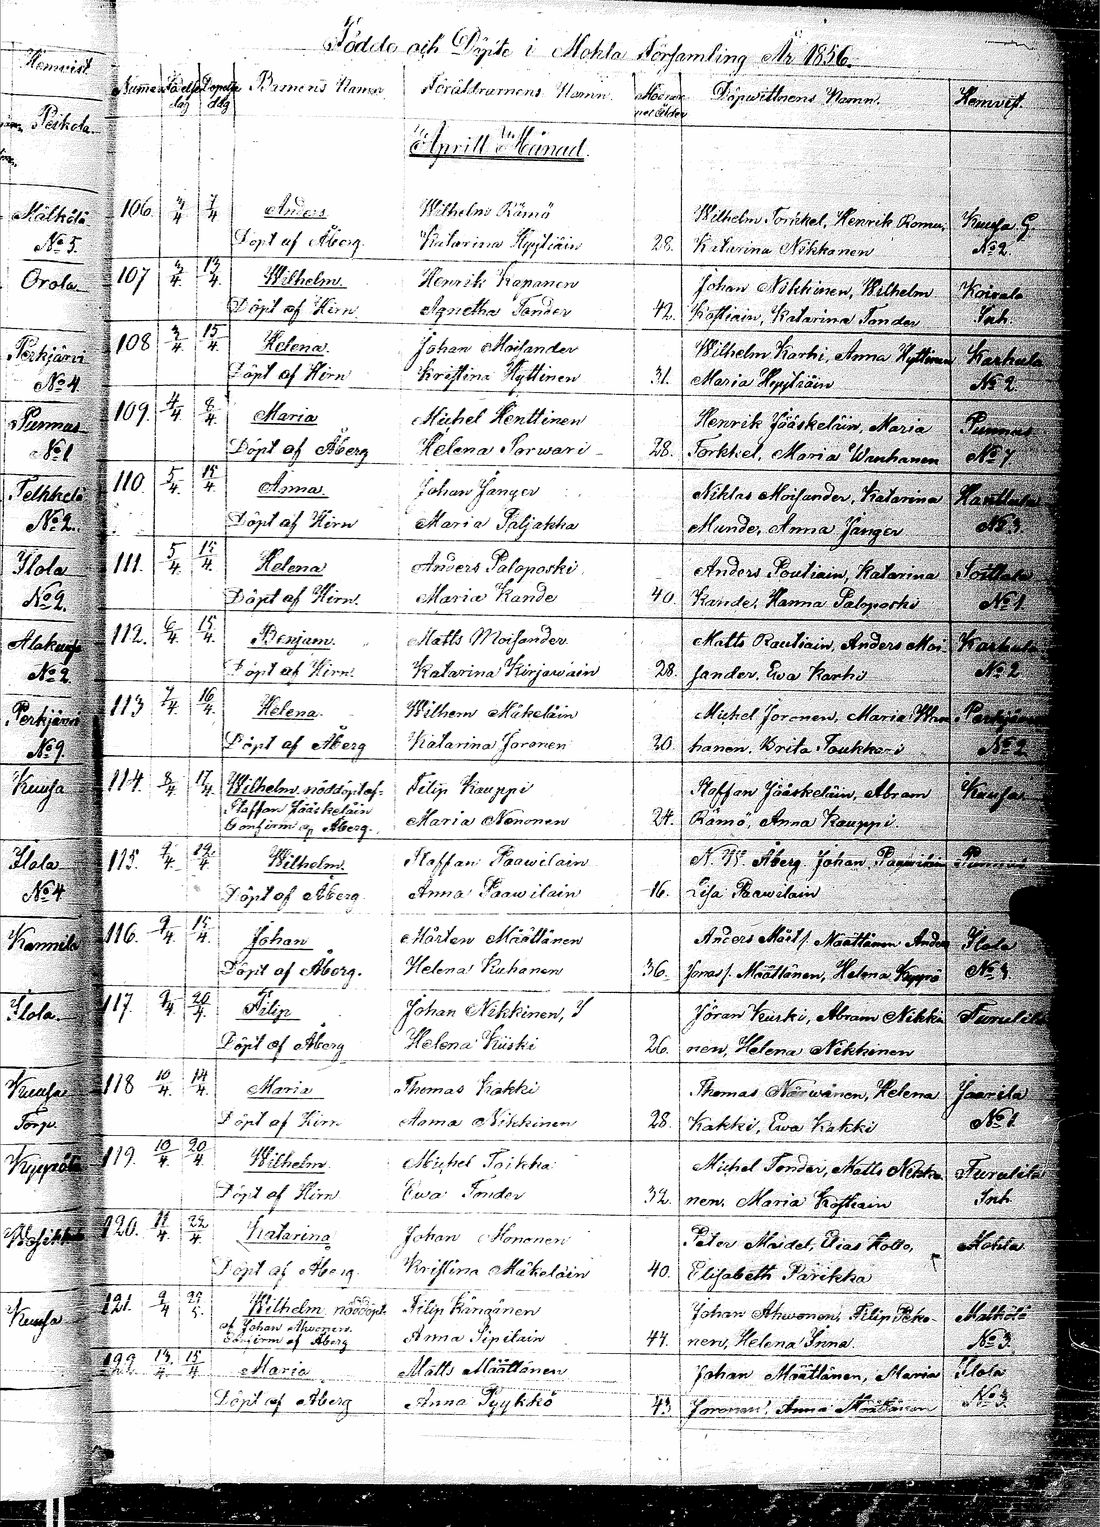 Födde och Döpte i Mohla Församling År 1856.
Hemvist
Peikola
Mälkölä
No 5
Orola
Perkjärvi
No 4
Punnus
No 1
Telkkelä
No 2.
Ilola
No 2
Alakuusa
No 2
Perkjärvi
No 9
Kuusa
Ilola
No 4
Kannila
Ilola
Kuusa
Torp.
Kyppölä
Kuusa
Numer Födelse dag Döpelse dag Barnens Namn Föräldrarnens Namn Modrarnes ålder Döpwittnens Namn. Hemvist
Aprill Månad.
106. 3/4 7/4 Anders Wilhelm Rämö Wilhelm Torkkel, Henrik Romu, Kuusa G
Döpt af Åberg. Katarina Hyytiäin 28. Katarina Nikkanen No 2.
107 3/4 13/4 Wilhelm Henrik Kapanen Johan Nikkinen, Wilhelm Koivala
Döpt af Hirn Agnetha Tonder 42. Kostiain, Katarina Tonder Inh.
108 3/4 15/4 Helena. Johan Moisander Wilhelm Karhi, Anna Hyttinen Karhula
Döpt af Hirn Kristina Hyttinen 31. Maria Hyytiäin No 2
109. 4/4 8/4 Maria Michel Henttinen Henrik Jääskeläin, Maria Punnus
Döpt af Åberg Helena Parwari 28. Torkkel, Maria Wanhanen No 7
110. 5/4 15/4 Anna. Johan Janger Niklas Moisander, Katarina Hanttula
Döpt af Hirn Maria Paljakka Munde, Anna Janger No 3
111. 5/4 15/4 Helena Anders Paloposki Anders Poutiain, Katarina Soittola
Döpt af Hirn. Maria Kande 40. Kande, Hanna Paloposki No 1
112. 6/4 15/4 Benjam. Matts Moisander Matts Rautiain, Anders Moi- Karhula
Döpt af Hirn. Katarina Kirjawain 28. sander, Ewa Karhi No 2
113 7/4 16/4 Helena. Wilhem Mäkeläin Michel Joronen, Maria Wan- Perkjärvi
Döpt af Åberg Katarina Joronen 20. hanen, Brita Taukkari No 2
114. 8/4 17/4 Wilhelm. nöddöpt af Filip Kauppi Staffan Jääskeläin, Abram Kuusa
Staffan Jääskeläin
Confirm af Åberg. Maria Nenonen 24. Rämö, Anna Kauppi.
115. 9/4 19/4 Wilhelm. Staffan Paawilain N. W. Åberg. Johan Paawilain Punnus
Döpt af Åberg. Anna Paawilain 16. Lisa Paawilain
116. 9/4 15/4 Johan Mårten Määttänen Anders Mårt/. Määttänen Anders Ilola
Döpt af Åberg. Helena Kuhanen 36. Jonas/. Määttänen, Helena Kyppö No 3
117. 9/4 20/4 Filip Johan Nikkinen, Jöran Kuski, Abram Nikki- Turulila
Döpt af Åberg Helena Kiiski 26. nen, Helena Nikkinen
118 10/4 14/4 Maria Thomas Kakki Thomas Närwänen, Helena Jaarila
Döpt af Hirn Anna Nikkinen 28. Kakki, Ewa Kakki No 1
119. 10/4 20/4 Wilhelm. Michel Taikka Michel Tonder, Matts Nikki- Turulila
Döpt af Hirn Ewa Tonder 32. nen, Maria Kostiain Inh
120. 11/4 22/4 Katarina Johan Mononen Peter Maidel, Elias Holto, Mohla
Döpt af Åberg. Kristina Mäkeläin 40. Elisabeth Parikka
121. 9/4 Wilhelm nöddöpt Filip Kingänen Johan Ahwonen, Filip Peko- Mälkölä
af Johan Ahwonen.
Confirm af Åberg Anna Pipilain 44. nen, Helena Inna. No 3.
122. 13/4 15/4 Maria Matts Määttänen Johan Määttänen, Maria Ilola
Döpt af Åberg Anna Pyykkö 43 Joronen, Anna Määttänen No 3